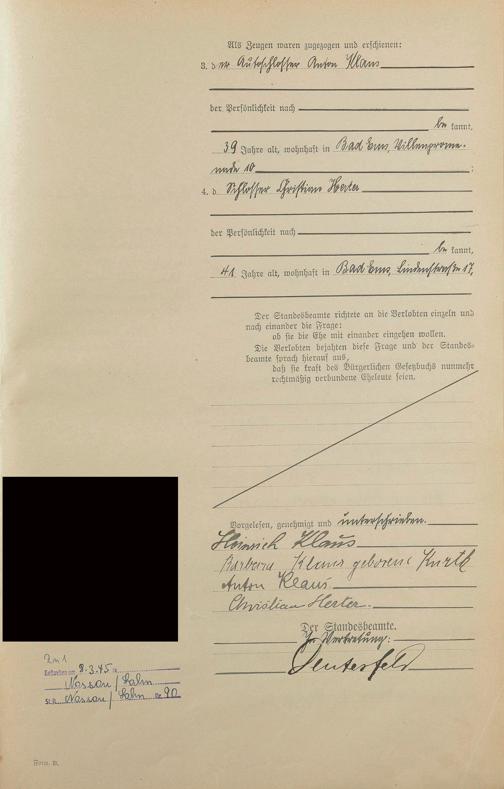 Als Zeugen waren zugezogen und erschienen:
3. der Autoschlosser Anton Klaus
der Persönlichkeit nach
be kannt,
39 Jahre alt, wohnhaft in Bad Ems, Villenprome-
nade 10 ;
4. d Schlosser Christian Herter
der Persönlichkeit nach
be kannt,
41 Jahre alt, wohnhaft in Bad Ems, Lindenstraße 17,
Der Standesbeamte richtete an die Verlobten einzeln und
nach einander die Frage:
ob sie die Ehe mit einander eingehen wollen.
Die Verlobten bejahten diese Frage und der Standes-
beamte sprach hierauf aus,
daß sie kraft des Bürgerlichen Gesetzbuchs nunmehr
rechtmäßig verbundene Eheleute seien.
Vorgelesen, genehmigt und unterschrieben.
Heinrich Klaus
Barbara Klaus geborene Kurth
Anton Klaus
Christian Herter.
Der Standesbeamte.
In Vertretung:
9.3.45 in
Nassau / Lahn
Nassau / Lahn Nr 90
Form. B.